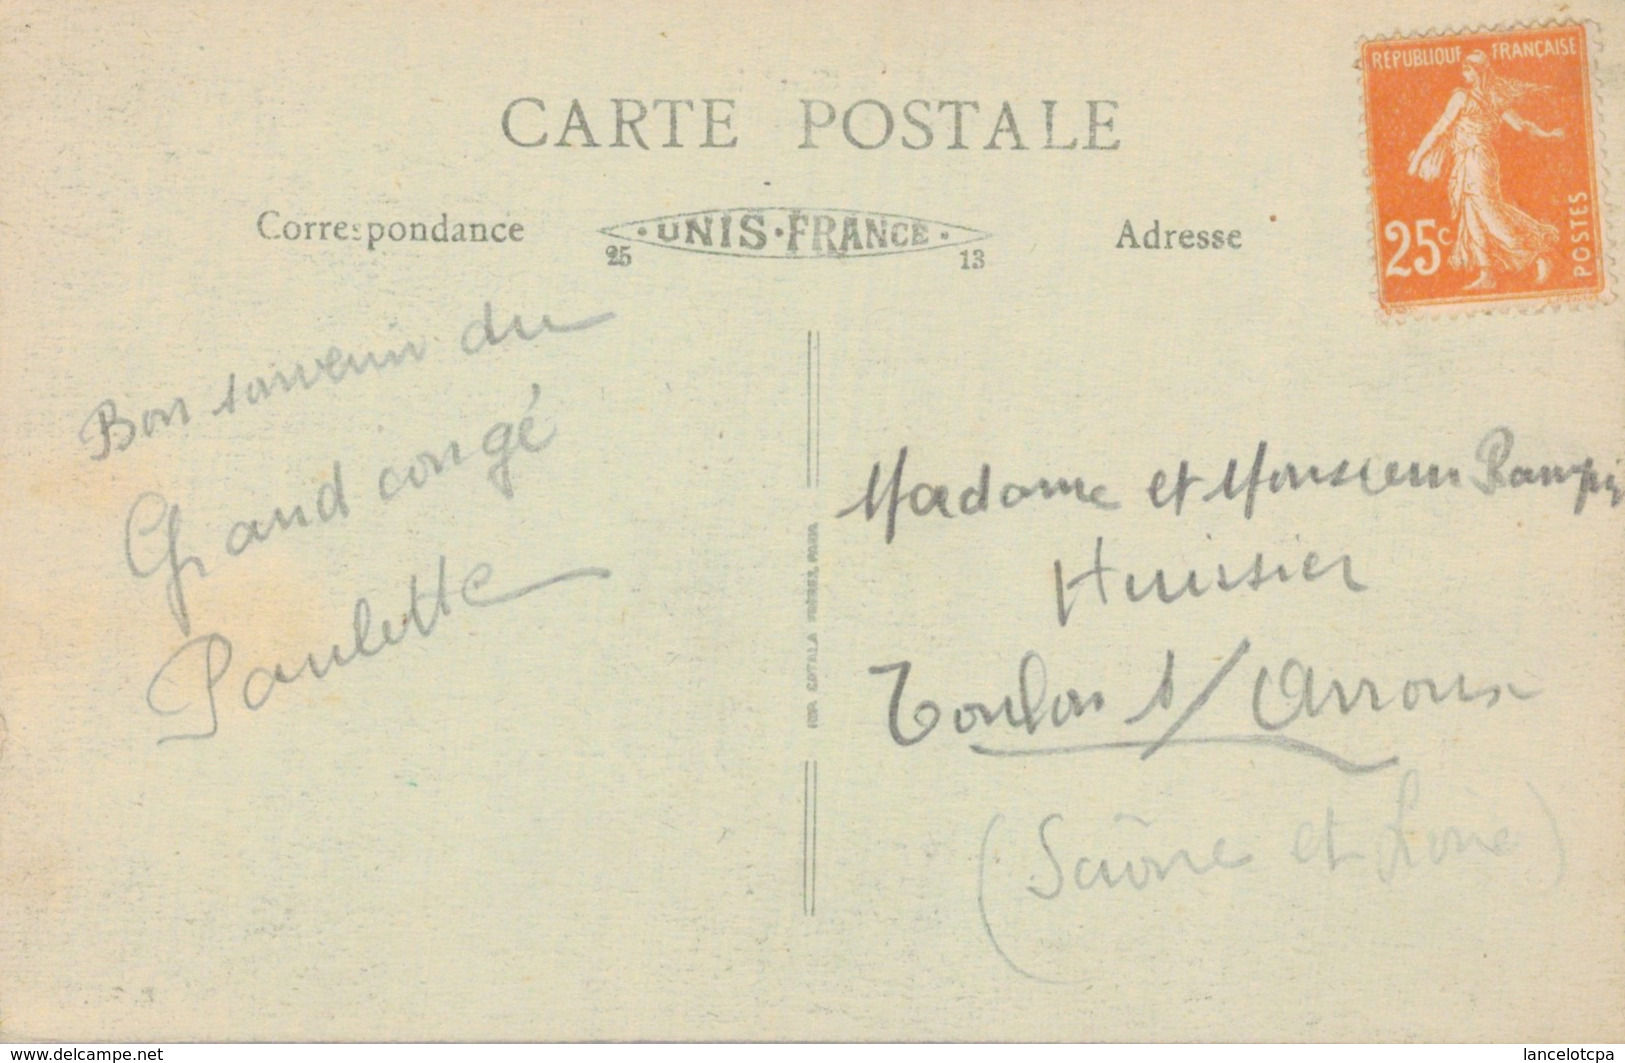 CARTE POSTALE
REPUBLIQUE FRANÇAISE
25c
POSTES
Correspondance
UNIS·FRANCE
25
13
Adresse
Bon souvenir du
Grand congé
Paulette
IMP. COMBIER
Madame et Monsieur
Huissier
Toulon s/ Arroux
(Saône et Loire)
www.delcampe.net
lancelotcpa